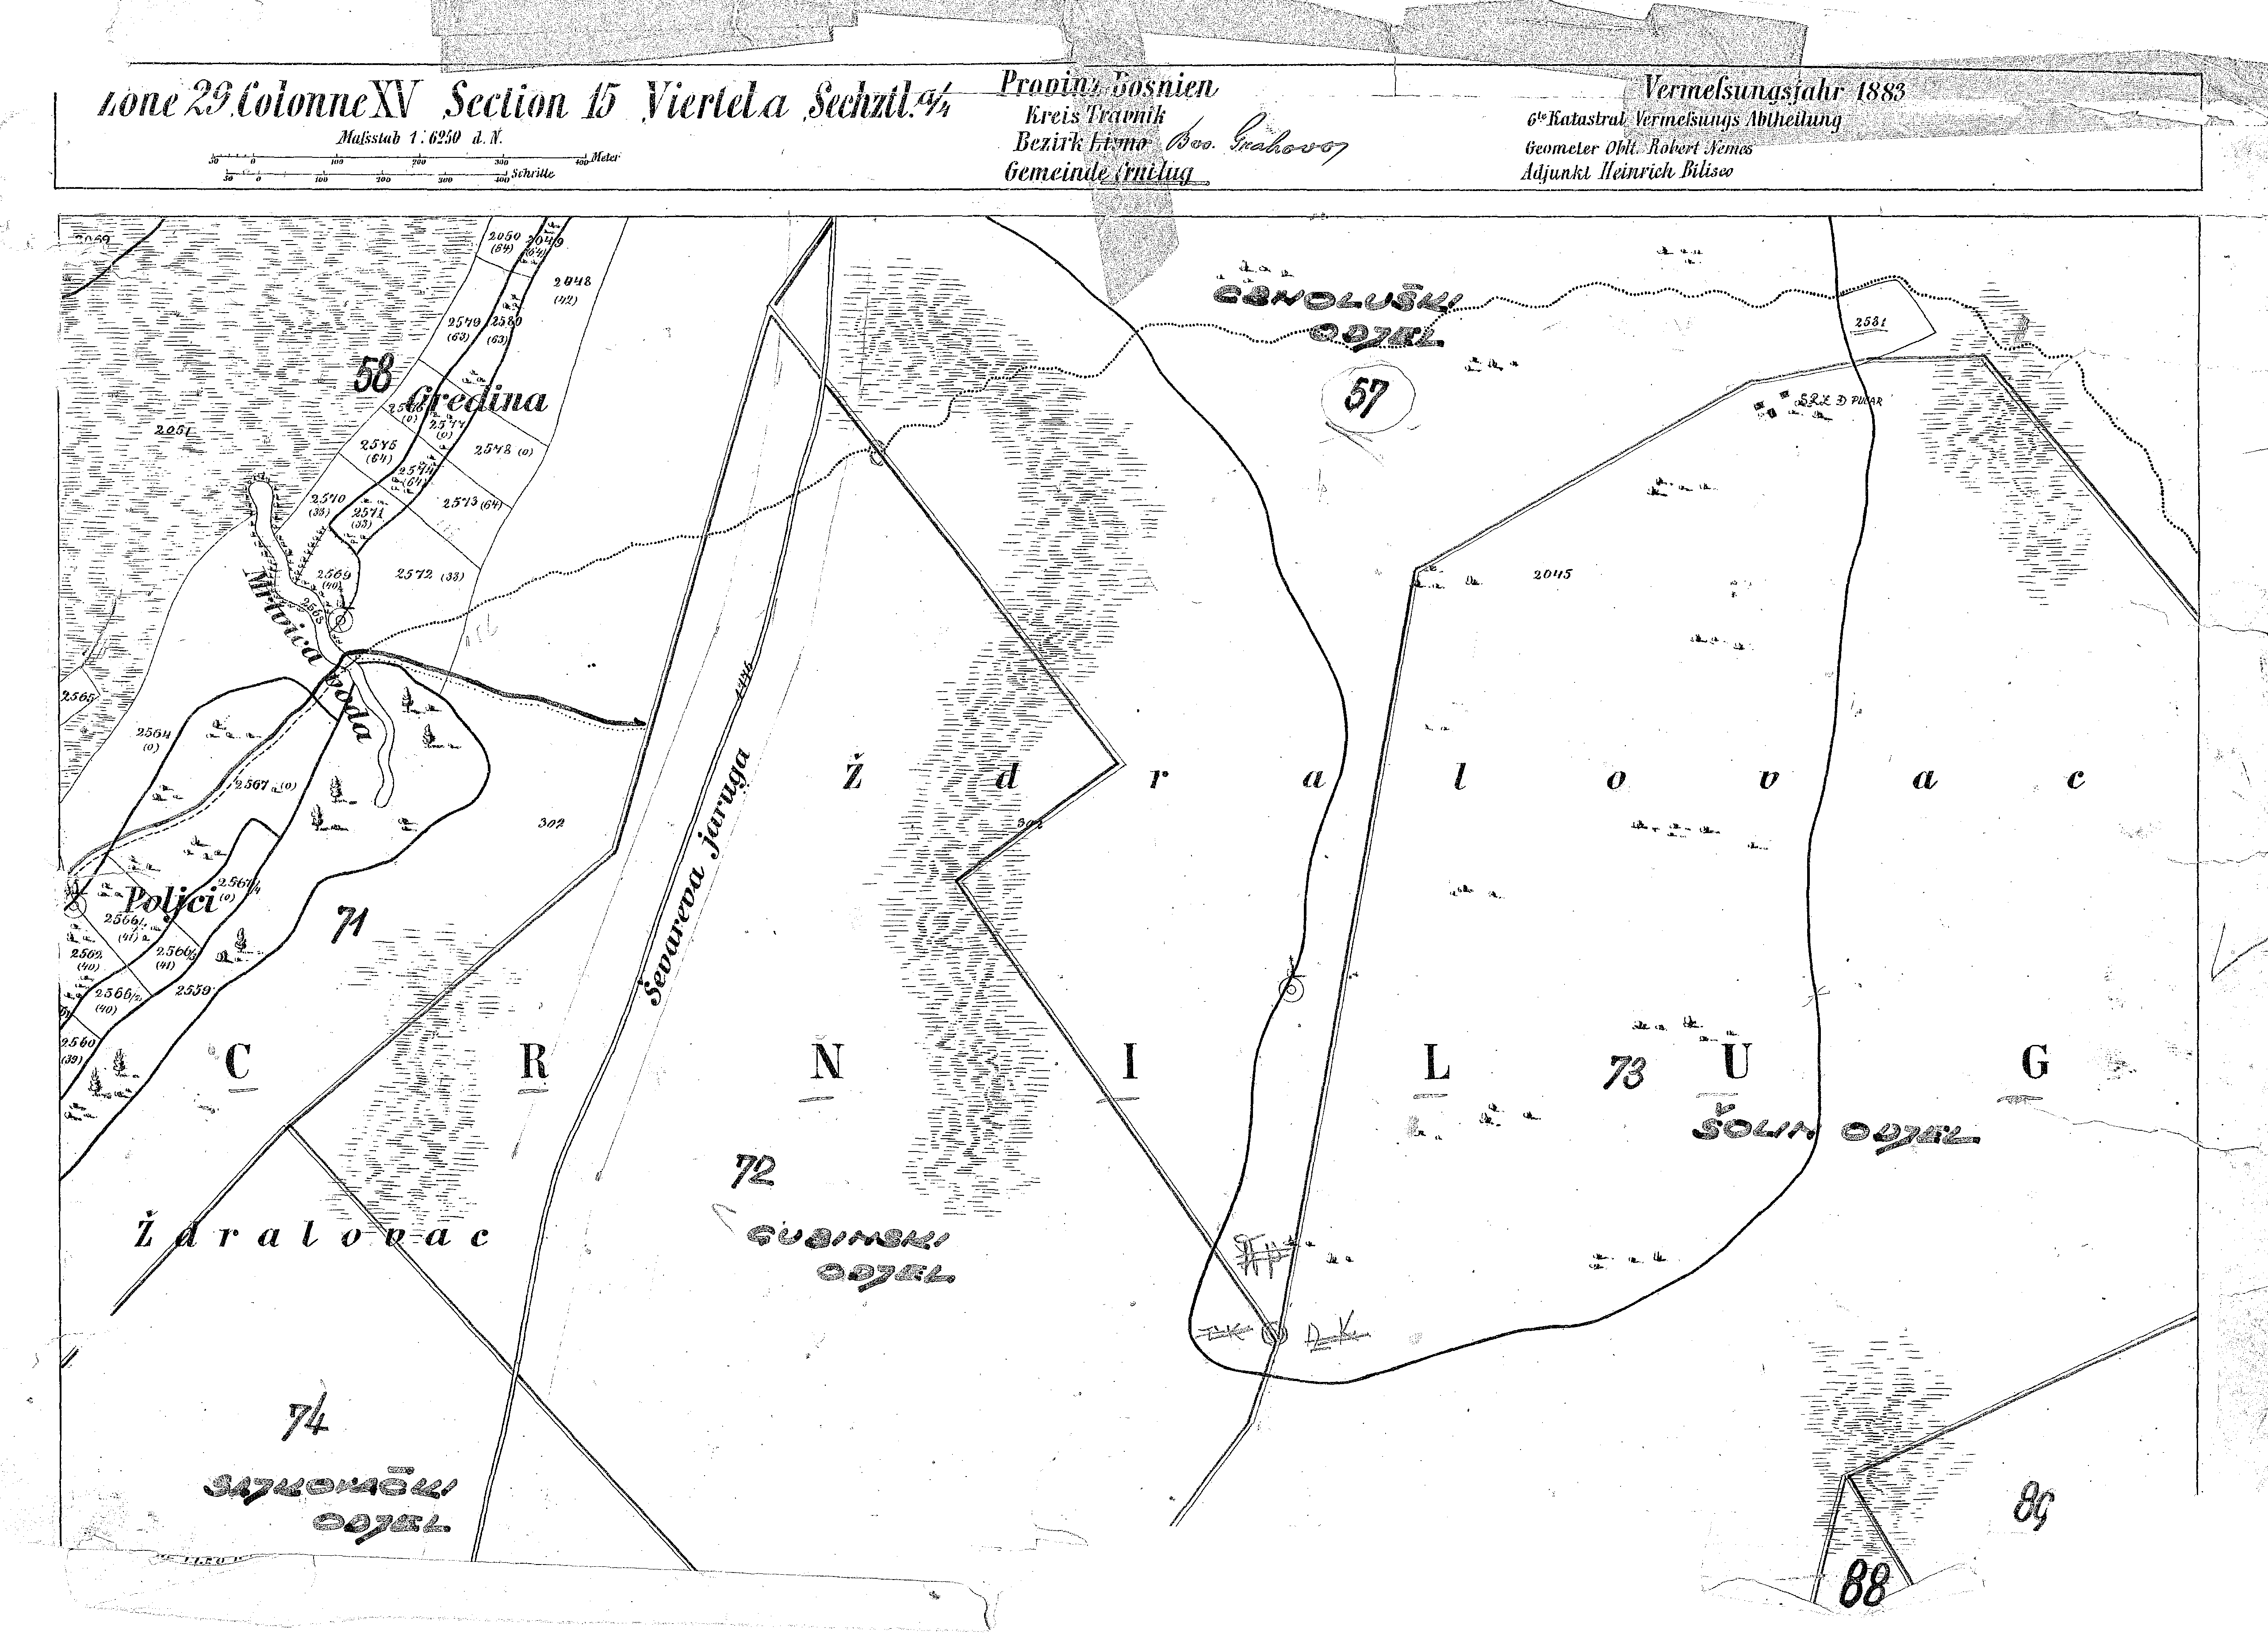 Zone 29. Colonne XV Section 15 Viertel a Sechztl. a/4
Maßstab 1 : 6250 d. N.
50 0 100 200 300 400 Meter
50 0 100 200 300 400 Schritte
Provinz Bosnien
Kreis Travnik
Bezirk Livno Bos. Grahovo
Gemeinde Crnilug
Vermeßungsjahr 1883
6te Katastral Vermeßungs Abtheilung
Geometer Oblt. Robert Nemes
Adjunkt Heinrich Bilisco
2069
2050
(64)
2049
(64)
2048
(42)
2579
(63)
2580
(63)
58
Gredina
2051
2577
(0)
2575
(64)
2578 (0)
2574
(64)
2570
(33)
2571
(33)
2573 (64)
2569
(40)
2572 (33)
2568
Mrtvica voda
2565
2564
(0)
2567 a (0)
302
Poljci
2567/4
(0)
2566/1
(41) a
2562
(40)
2566/3
(41)
2566/2
(40)
2559
2560
(39)
71
CRNOLUŠKI
ODJEL
57
2581
2045
Ševareva jaruga
Ž d r a l o v a c
302
C R N I L U G
73
ŠOLIN ODJEL
72
GUBINSKI
ODJEL
Ždralovac
74
SAJKOVAČKI
ODJEL
89
88